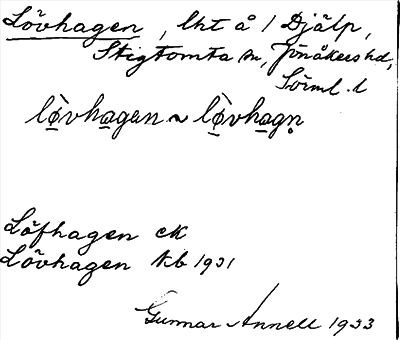 Lövhagen, lht å 1 Djälp,
Stigtomta sn, Jönåkers hd,
Sörml. l
lø̀vhagen ~ lø̀vhagn̥
Löfhagen ek
Lövhagen Kb 1931
Gunnar Annell 1933